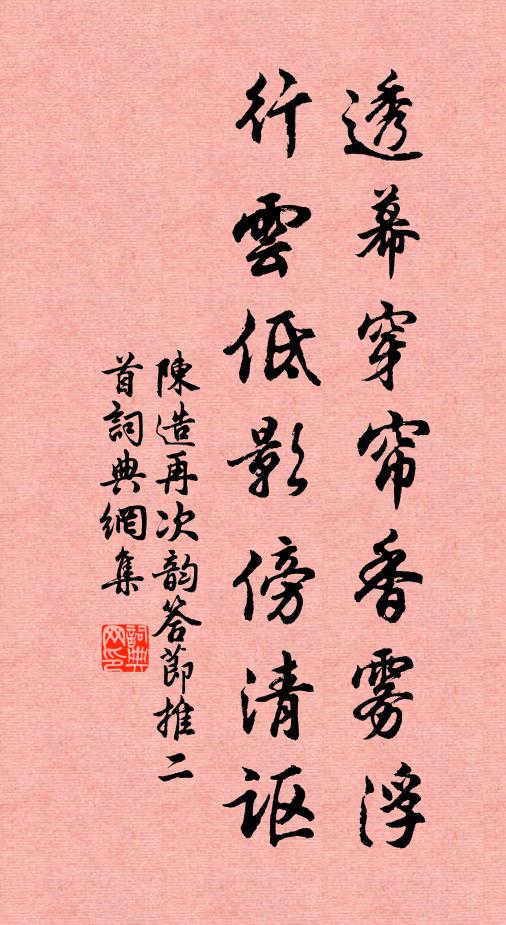 透幕穿帘香雾浮
行雲低影傍清讴
陳造再次韵答節推二
首詞典網集
詞典
网印